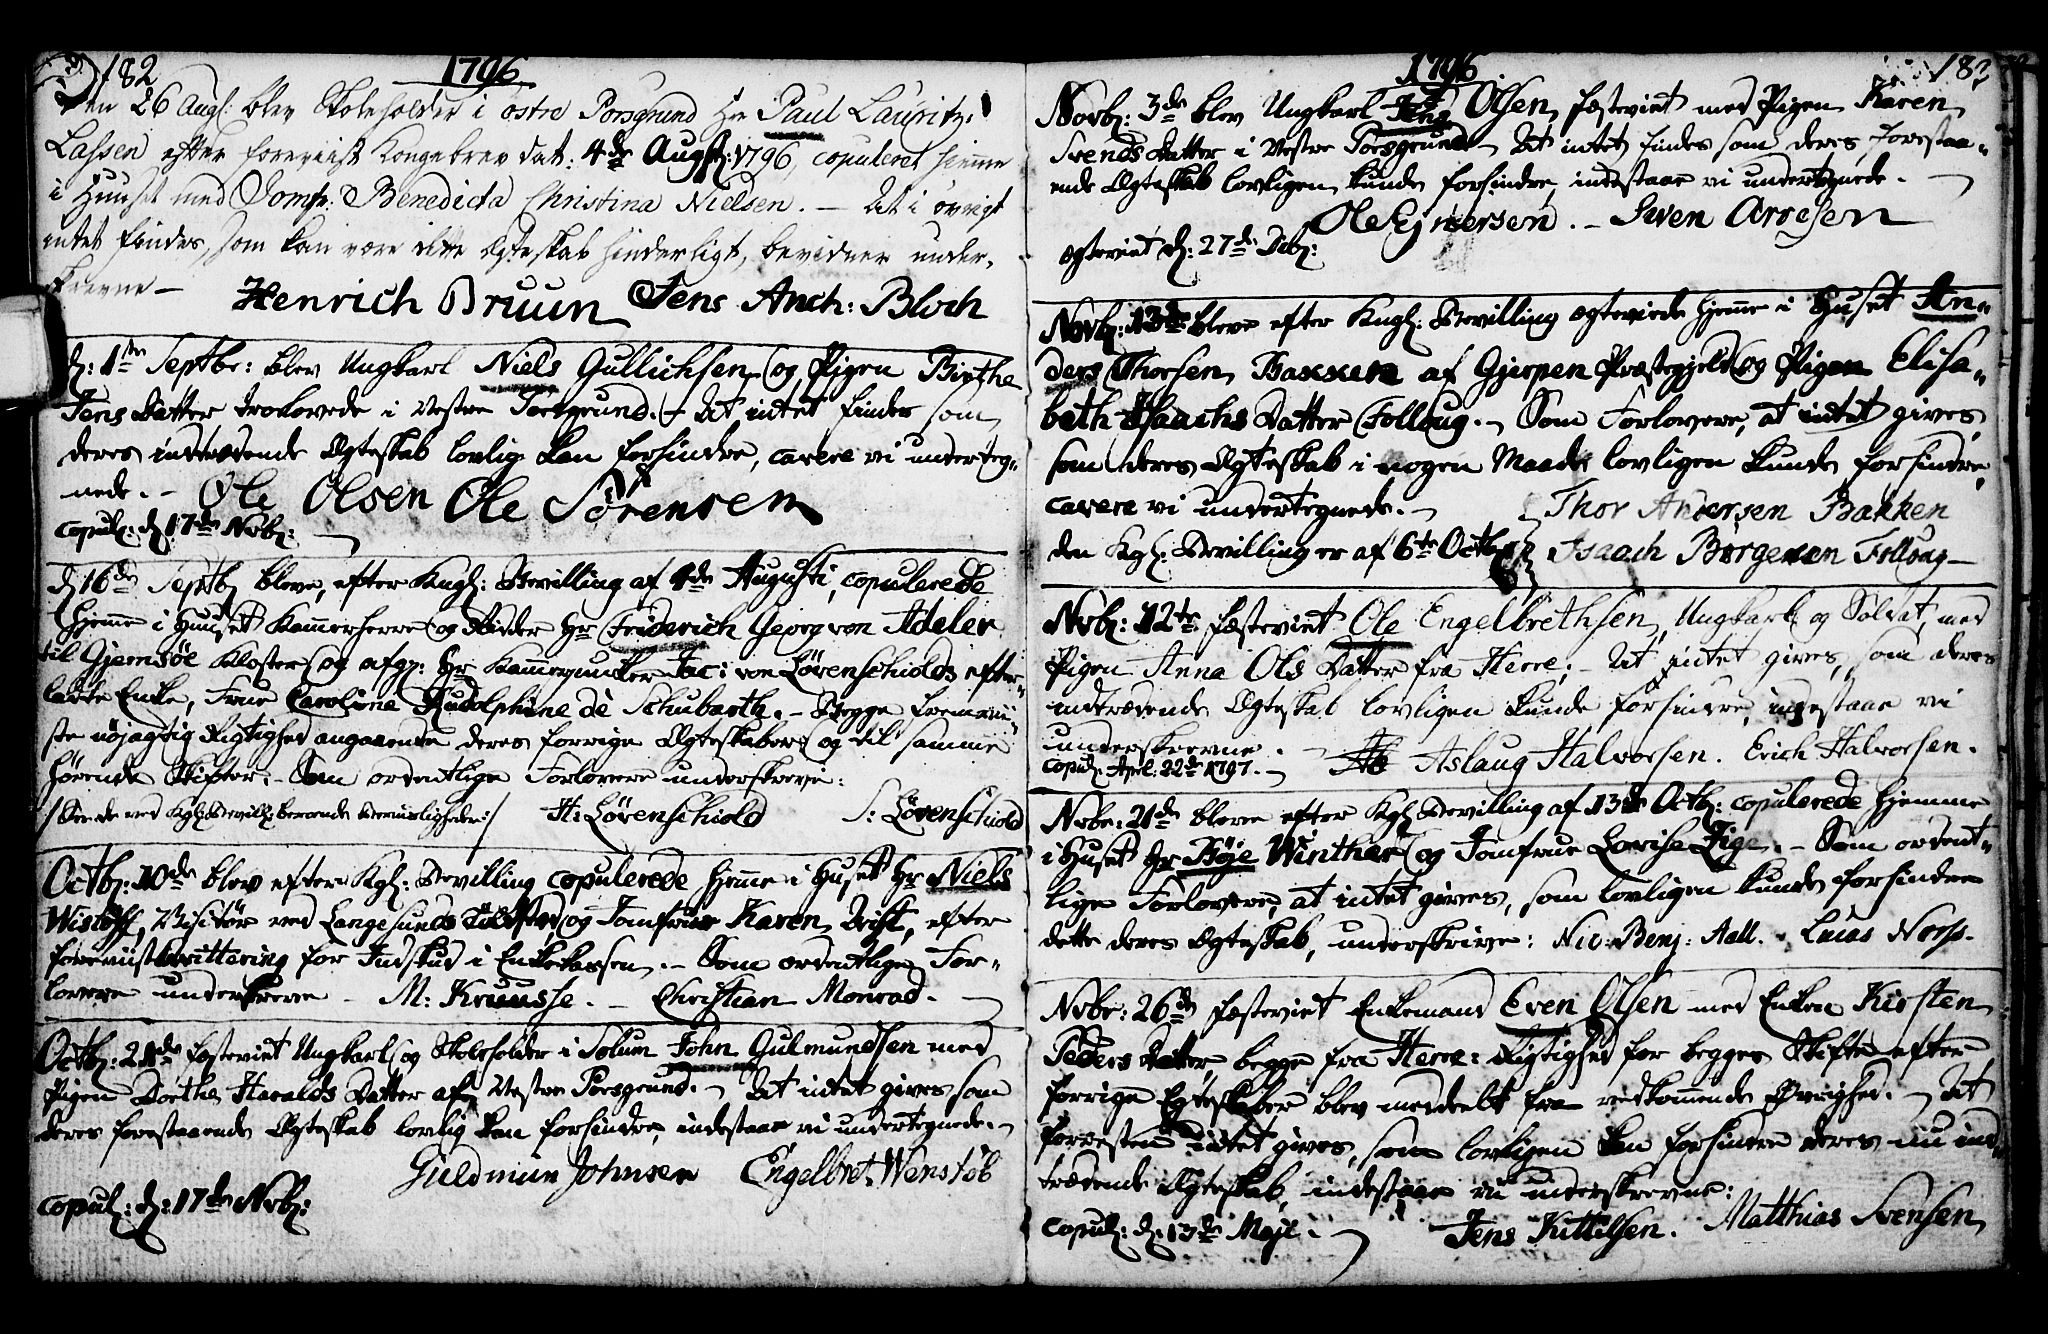 182
1796
Den 26 Aug: blev Skoleholder i østre Porsgrund Hr Paul Lauritz
Lassen efter foreviist Kongebrev dat: 4de Augst: 1796, copuleret hiemme
i Huuset med Jomfr: Benedicta Christina Nielsen. — At i øvrigt
intet findes, som kan være dette Ægteskab hinderligt, bevidner under-
skrevne —
Henrich Bruun Jens Anch: Bloch
d: 1te Septbr: blev Ungkarl Niels Gullichsen og Pigen Birthe
Jens Datter trolovede i Vestre Porsgrund. — At intet findes som
deres indtrædende Ægteskab lovlig kan forhindre, cavere vi underteg-
nede. — Ole Olsen Ole Sörensen
copul: d 17de Novb:
d 16de Septb bleve, efter Kngl: Bevilling af 4de Augusti, copulerede
hjemme i Huuset Kammerherre og Ridder Hr Friderich Georg von Adeler
til Gjemsöe Kloster og afg: Hr Kamerjunker Jac: von Lövenschiolds efter-
ladte Enke, Frue Caroline Rudolphine de Schubarth. — Begge beviis-
te nöjagtig Rigtighed angaaende deres forrige Ægteskaber og til samme
hørende Skifter. — Som ordentlige Forlovere underskreve:
H: Lövenschiold S: Lövenschiold
Octb: 10de blev efter Kgl: Bevilling copulerede hjemme i Huset Hr Niels
Wistoff, Visitör ved Langesunds Toldsted, og Jomfrue Karen Drift, efter
foreviist Kvittering for Indskud i Enkekassen. — Som ordentlige For-
lovere underskreve — M: Kruusse. — Christian Monrad.
Octb: 21de fæsteviet Ungkarl og Skoleholder i Solum John Gulmundsen med
Pigen Dorthe Haralds Datter af Vestre Porsgrund. — At intet gives som
deres forestaaende Ægteskab lovlig kan forhindre, indestaae vi undertegnede. —
Guldmun Johnsen Engelbret Wenstöb
copul: d: 17de Novb:
1796
183
Novb: 3de blev Ungkarl Jens Olsen fæsteviet med Pigen Karen
Svends Datter i Vestre Porsgrund — At intet findes som deres forestaa-
ende Ægteskab lovligen kunde forhindre, indestaae vi undertegnede. —
Ole Ejnersen. — Swen Aresen
ægteviet d: 27de Decb:
Novb: 13de bleve efter Kngl: Bevilling ægteviede hjemme i Huset An-
ders Thorsen Bakken af Gjerpen Præstegjeld og Pigen Elisa-
beth Isaachs Datter Follaug. — Som Forlovere, at intet gives,
som deres Ægteskab i nogen Maade lovligen kunde forhindre,
cavere vi undertegnede. — Thor Andersen Bakken
den Kgl: Bevilling er af 6te Octb: Isaach Börgesen Follaug —
Novb: 12te fæsteviet Ole Engelbrethsen, Ungkarl og Soldat, med
Pigen Anna Ols Datter fra Herre; — At intet gives, som deres
indtrædende Ægteskab lovligen kunde forhindre, indestaae vi
underskrevne. — Aslaug Halvorsen. Erich Halvorsen.
copul: Apr: 22de 1797. —
Novbr: 21de bleve efter Kgl Bevilling af 13de Octb: copulerede hjemme
i Huset Hr Böje Winther og Jomfrue Lovise Zige. — Som ordent-
lige Forlovere, at intet gives, som lovligen kunde forhindre
dette deres Ægteskab, underskrive: Nic: Benj: Aall. Lucas
Novbr: 26de fæsteviet Enkemand Even Olsen med Enken Kirsten
Peders Datter, begge fra Herre: Rigtighed for begges Skifte efter
forrige Egteskaber blev meddeelt fra vedkommende Övrighed. — At
forresten intet gives, som lovligen kan forhindre deres nu ind-
trædende Ægteskab, indestaae vi underskrevne:
copul: d: 13de Maji. — Jens Kittilsen. Matthias Svensen